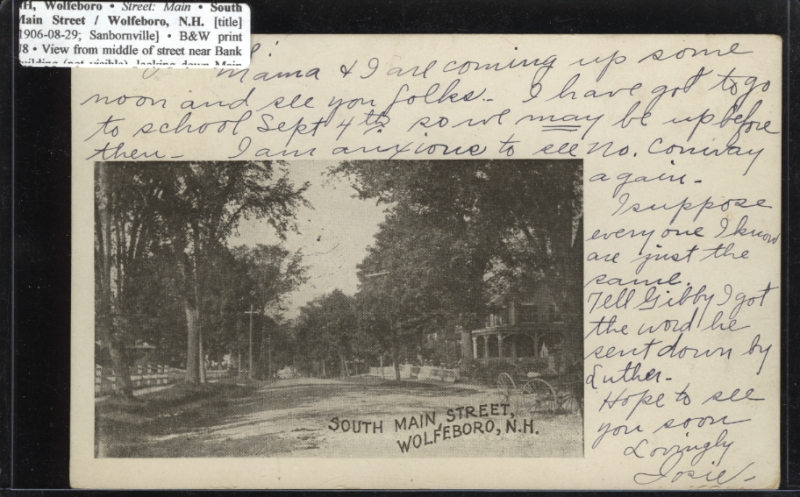 NH, Wolfeboro • Street: Main • South
Main Street / Wolfeboro, N.H. [title]
[1906-08-29; Sanbornville] • B&W print
J8 • View from middle of street near Bank
building (not visible), looking down Main
Mama & I are coming up some
noon and see you folks. I have got to go
to school Sept 4th so we may be up before
then - I am anxious to see No. Conway
again -
I suppose
every one I know
are just the
same.
Tell Gibby I got
the word he
sent down by
Luther -
Hope to see
you soon
Lovingly
Josie -
SOUTH MAIN STREET,
WOLFEBORO, N.H.